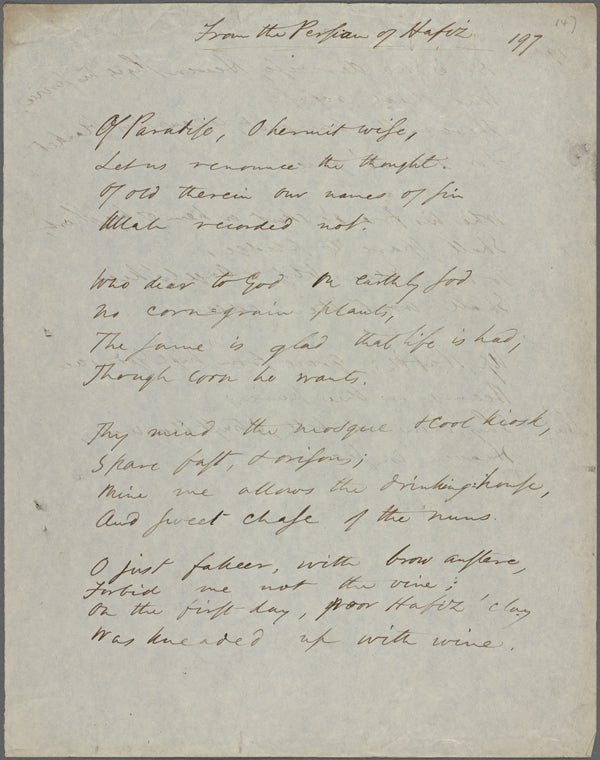 From the Persian of Hafiz
197
147
Of Paradise, O hermit wise,
Let us renounce the thought.
Of old therein our names of sin
Allah recorded not.
Who dear to God on earthly sod
No corn-grain plants,
The same is glad that life is had,
Though corn he wants.
Thy mind the mosque & cool kiosk,
Spare fast, & orisons;
Mine me allows the drinking-house,
And sweet chase of the nuns.
O just fakeer, with brow austere,
Forbid me not the vine;
On the first day, poor Hafiz' clay
Was kneaded up with wine.